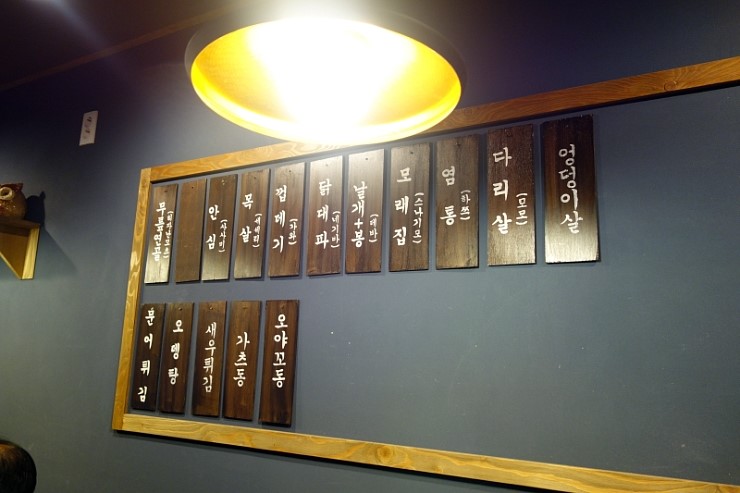 무릎연골
안심 (사사미)
목살 (세세리)
껍데기 (가와)
닭대파 (네기마)
날개+봉 (데바)
모래집 (스나기모)
염통 (하쯔)
다리살 (모모)
엉덩이살
문어튀김
오뎅탕
새우튀김
가츠동
오야꼬동